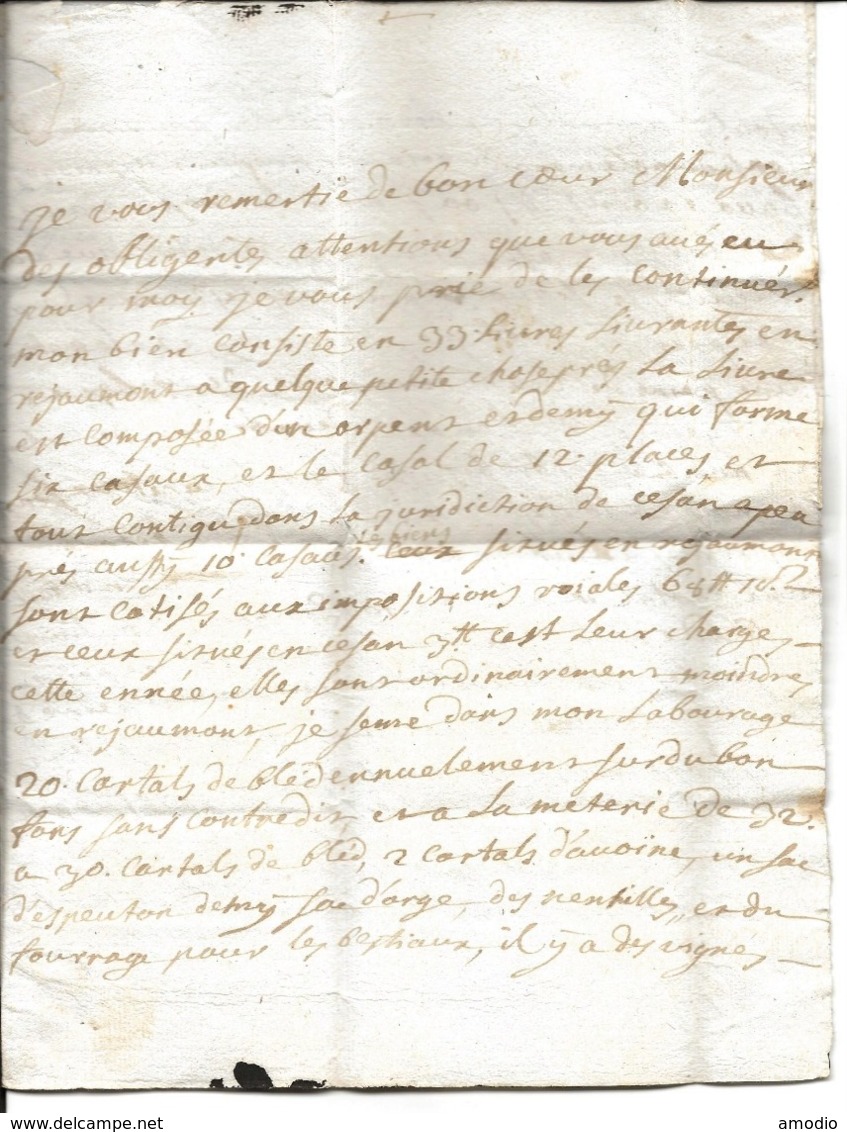 je vous remertie de bon cœur Monsieur
des obligentes attentions que vous avés eu
pour moy je vous prie de les continuér.
mon bien consiste en 33. livres livrantes en
rejaumont a quelque petite chose prés la Livre
est composée d'un arpent et demÿ qui forme
six casaux, et le casal de 12. places et
tout contigu, dans la juridiction de cesan a peu
prés aussy 10. casaux. les biens
situés en rejaumont
sont cotisés aux impositions roiales 64
et ceux situés en cesan 3tt c'est leur charges
cette ennée, elles sont ordinairement moindres
en rejaumont, je seme dans mon Labourage
20. cartals de bléd ennuelement sur du bon
fons sans contredit, et a La meterie de 32.
a 30. cartals de bléd, 2 cartals d'avoine, un sac
d'espeuton demÿ sac d'orge, des nentilles, et du
fourrage pour les bestiaux, il ÿ a des vignes
amodio